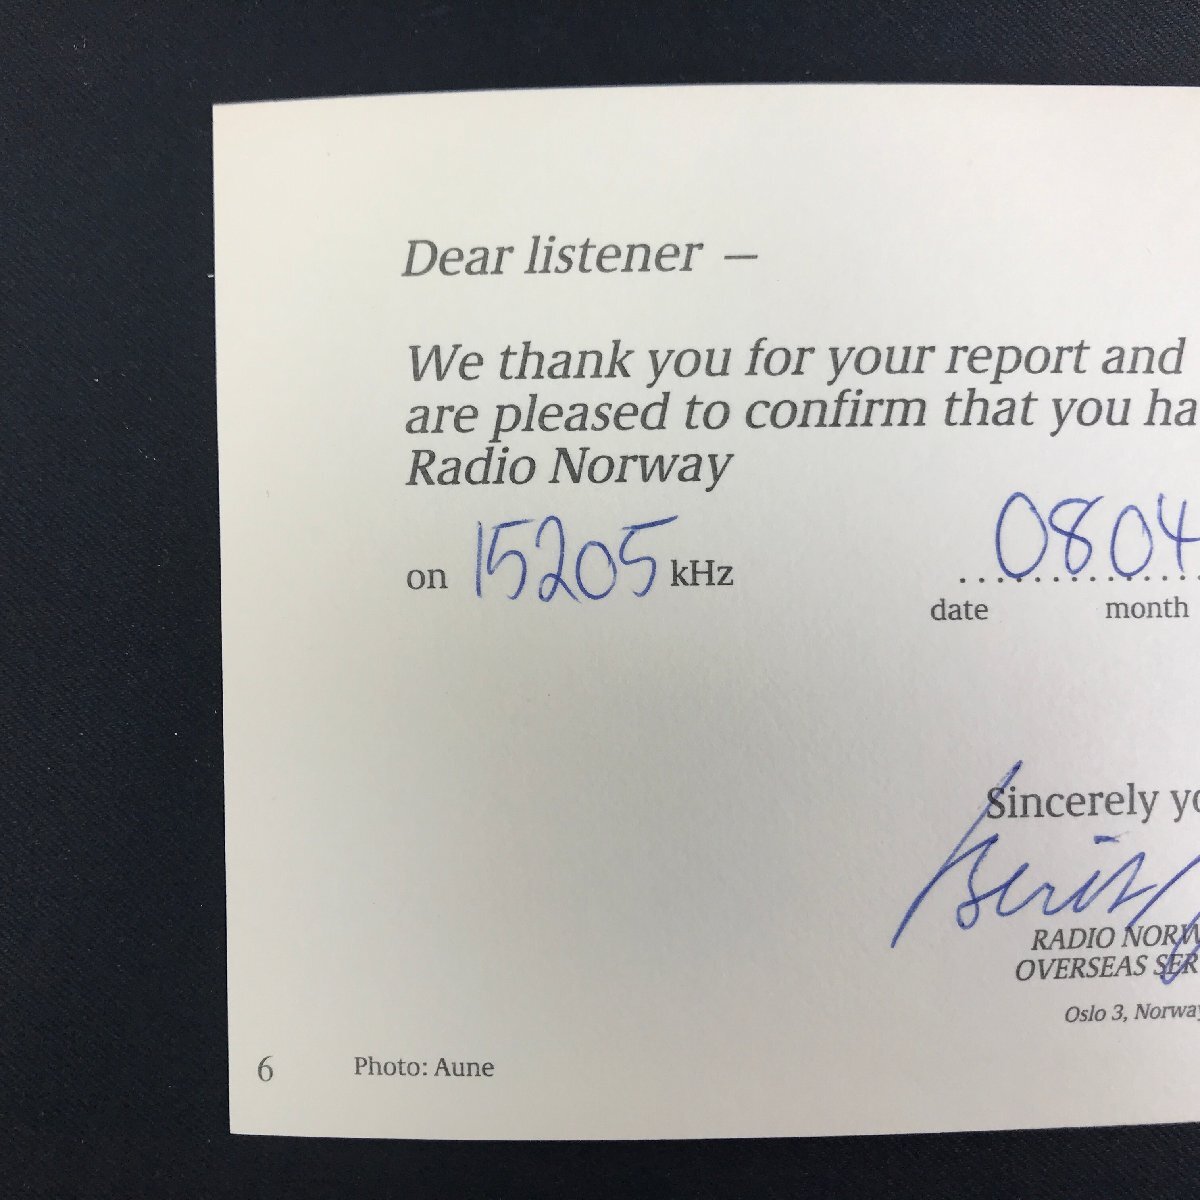 Dear listener –
We thank you for your report and
are pleased to confirm that you ha
Radio Norway
on 15205 kHz 0804
date month
Sincerely yo
Berit
RADIO NORW
OVERSEAS SER
Oslo 3, Norway
6 Photo: Aune